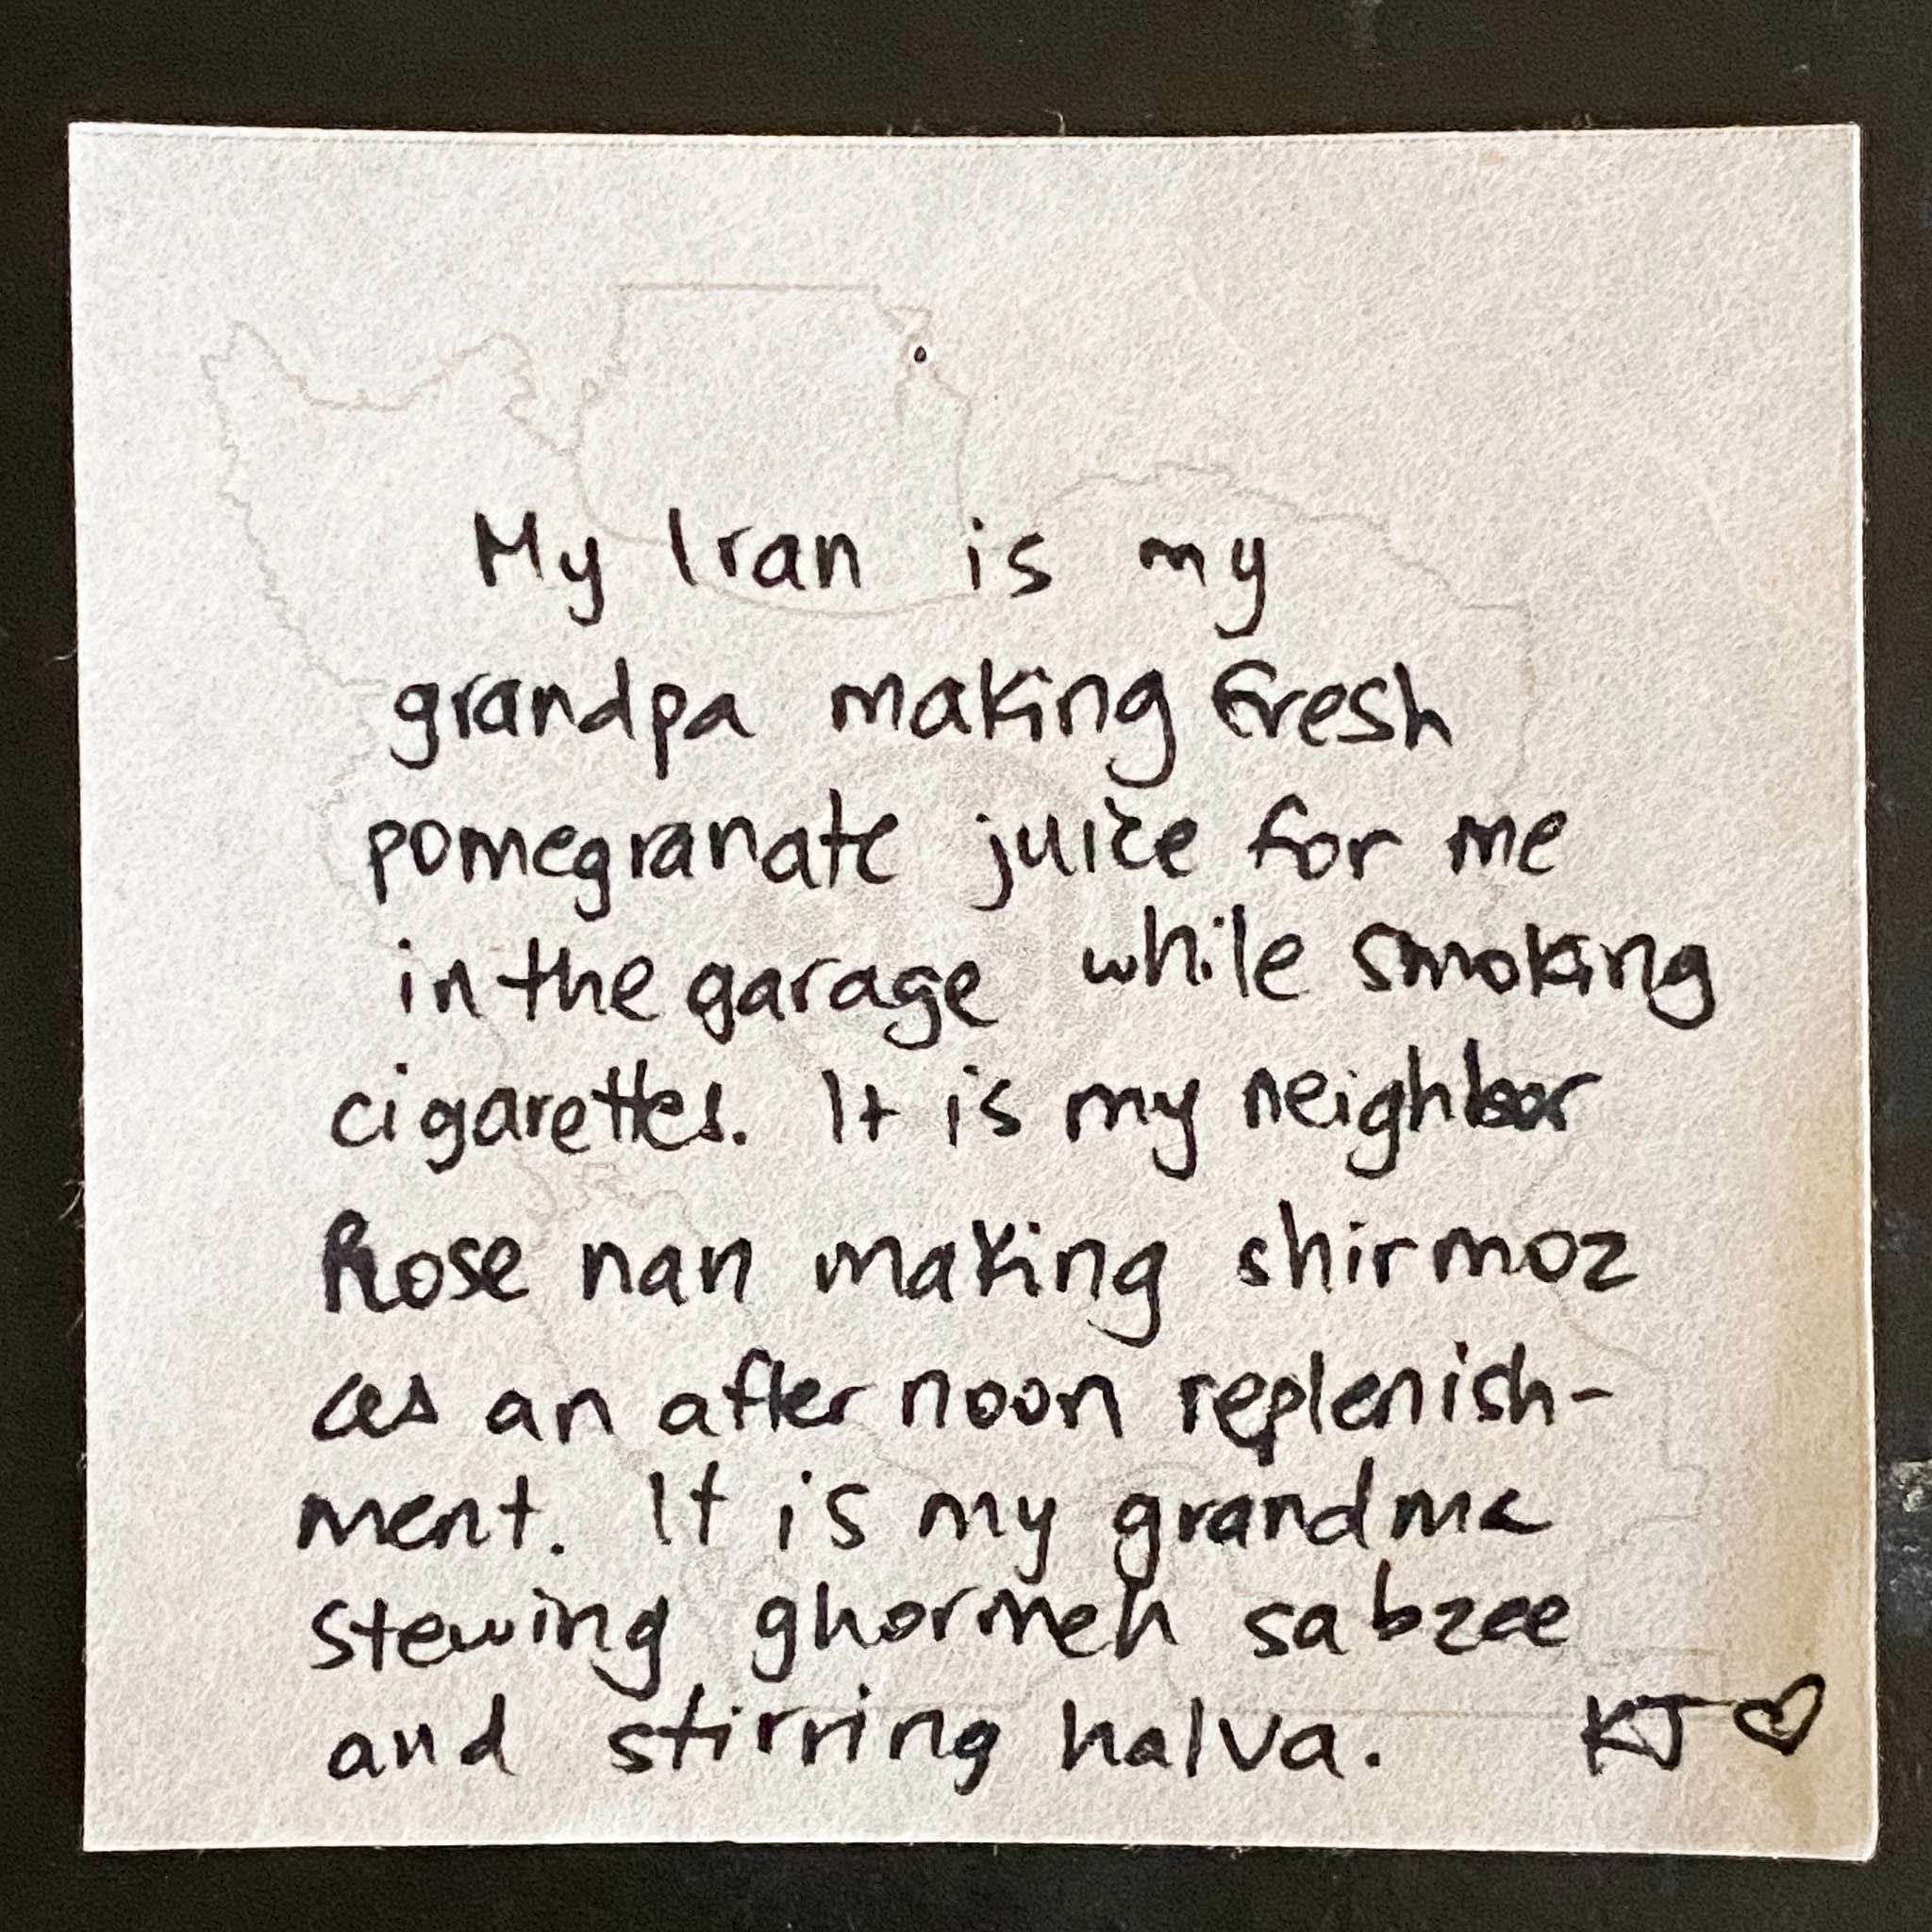 My Iran is my
grandpa making fresh
pomegranate juice for me
in the garage while smoking
cigarettes. It is my neighbor
Rose nan making shirmoz
as an after noon replenish-
ment. It is my grandma
stewing ghormeh sabzee
and stirring halva. KJ ♡